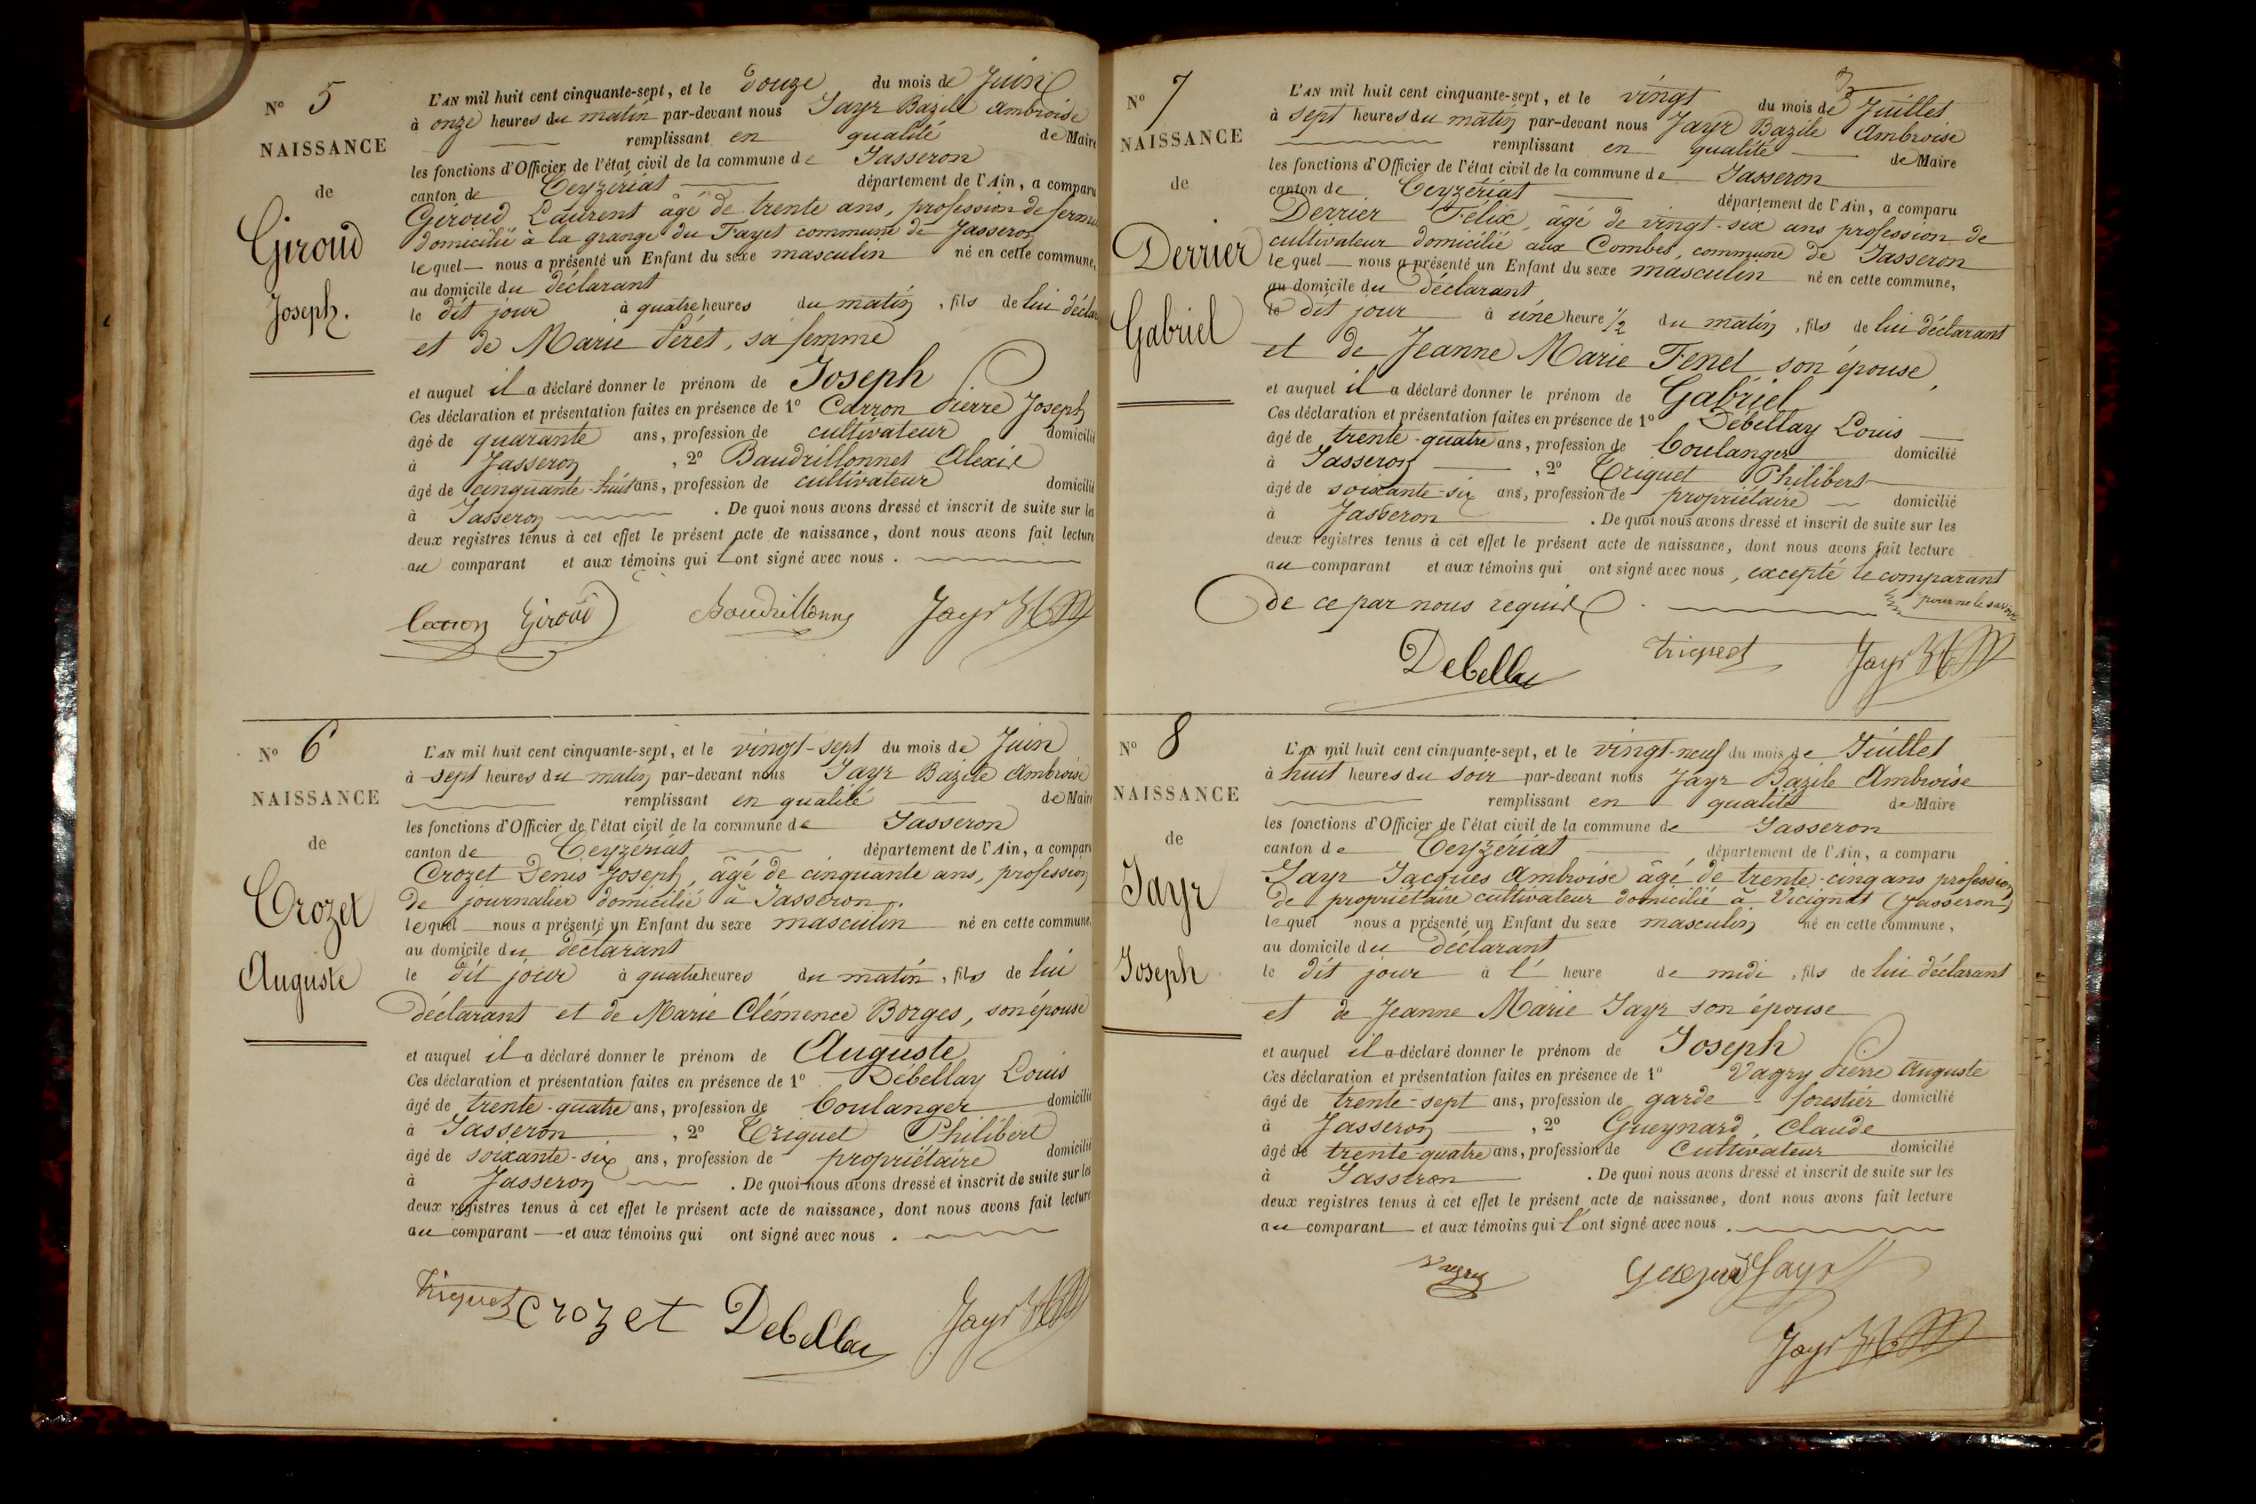 N° 5
NAISSANCE
de
Giroud
Joseph.
L'AN mil huit cent cinquante-sept, et le douze du mois de Juin
à onze heures du matin par-devant nous Jayr Bazile Ambroise
remplissant en qualité de Maire
les fonctions d'Officier de l'état civil de la commune de Jasseron
canton de Ceyzériat département de l'Ain, a comparu
Giroud Laurent âgé de trente ans, profession de fermi
domicilié à la grange du Fayet commune de Jasseron
lequel nous a présenté un Enfant du sexe masculin né en cette commune,
au domicile du déclarant
le dit jour à quatre heures du matin, fils de lui décla
et de Marie Péret, sa femme
et auquel il a déclaré donner le prénom de Joseph
Ces déclaration et présentation faites en présence de 1° Carron Pierre Joseph
âgé de quarante ans, profession de cultivateur domicilié
à Jasseron, 2° Baudrillonnet Alexis
âgé de cinquante-huit ans, profession de cultivateur domicilié
à Jasseron. De quoi nous avons dressé et inscrit de suite sur les
deux registres tenus à cet effet le présent acte de naissance, dont nous avons fait lecture
au comparant et aux témoins qui l'ont signé avec nous.
Carron Giroud Baudrillonn Jayr
N° 6
NAISSANCE
de
Crozet
Auguste
L'AN mil huit cent cinquante-sept, et le vingt-sept du mois de Juin
à sept heures du matin par-devant nous Jayr Bazile Ambroise
remplissant en qualité de Maire
les fonctions d'Officier de l'état civil de la commune de Jasseron
canton de Ceyzériat département de l'Ain, a comparu
Crozet Denis Joseph, âgé de cinquante ans, profession
de journalier domicilié à Jasseron.
lequel nous a présenté un Enfant du sexe masculin né en cette commune,
au domicile du déclarant
le dit jour à quatre heures du matin, fils de lui
déclarant et de Marie Clémence Borges, son épouse
et auquel il a déclaré donner le prénom de Auguste
Ces déclaration et présentation faites en présence de 1° Débellay Louis
âgé de trente-quatre ans, profession de boulanger domicilié
à Jasseron, 2° Triquet Philibert
âgé de soixante-six ans, profession de propriétaire domicilié
à Jasseron. De quoi nous avons dressé et inscrit de suite sur les
deux registres tenus à cet effet le présent acte de naissance, dont nous avons fait lecture
au comparant et aux témoins qui ont signé avec nous.
Triquet Crozet Debellay Jayr
3
N° 7
NAISSANCE
de
Derrier
Gabriel
L'AN mil huit cent cinquante-sept, et le vingt du mois de Juillet
à sept heures du matin par-devant nous Jayr Bazile Ambroise
remplissant en qualité de Maire
les fonctions d'Officier de l'état civil de la commune de Jasseron
canton de Ceyzériat département de l'Ain, a comparu
Derrier Félix, âgé de vingt-six ans profession de
cultivateur domicilié aux Combes, commune de Jasseron
lequel nous a présenté un Enfant du sexe masculin né en cette commune,
au domicile du déclarant
le dit jour à une heure 1/2 du matin, fils de lui déclarant
et de Jeanne Marie Fenet son épouse,
et auquel il a déclaré donner le prénom de Gabriel
Ces déclaration et présentation faites en présence de 1° Débellay Louis
âgé de trente-quatre ans, profession de boulanger domicilié
à Jasseron, 2° Triquet Philibert
âgé de soixante-six ans, profession de propriétaire domicilié
à Jasseron. De quoi nous avons dressé et inscrit de suite sur les
deux registres tenus à cet effet le présent acte de naissance, dont nous avons fait lecture
au comparant et aux témoins qui ont signé avec nous, excepté le comparant
pour ne le savoir
de ce par nous requis.
Debellay Triquet Jayr
N° 8
NAISSANCE
de
Jayr
Joseph
L'AN mil huit cent cinquante-sept, et le vingt-neuf du mois de Juillet
à huit heures du soir par-devant nous Jayr Bazile Ambroise
remplissant en qualité de Maire
les fonctions d'Officier de l'état civil de la commune de Jasseron
canton de Ceyzériat département de l'Ain, a comparu
Jayr Jacques Ambroise âgé de trente-cinq ans profession
de propriétaire cultivateur domicilié à Vicignat (Jasseron)
lequel nous a présenté un Enfant du sexe masculin né en cette commune,
au domicile du déclarant
le dit jour à l' heure de midi, fils de lui déclarant
et de Jeanne Marie Jayr son épouse
et auquel il a déclaré donner le prénom de Joseph
Ces déclaration et présentation faites en présence de 1° Vagry Pierre Auguste
âgé de trente-sept ans, profession de garde-forestier domicilié
à Jasseron, 2° Gueynard Claude
âgé de trente-quatre ans, profession de Cultivateur domicilié
à Jasseron. De quoi nous avons dressé et inscrit de suite sur les
deux registres tenus à cet effet le présent acte de naissance, dont nous avons fait lecture
au comparant et aux témoins qui l'ont signé avec nous.
Vagry Gueynard Jayr
Jayr